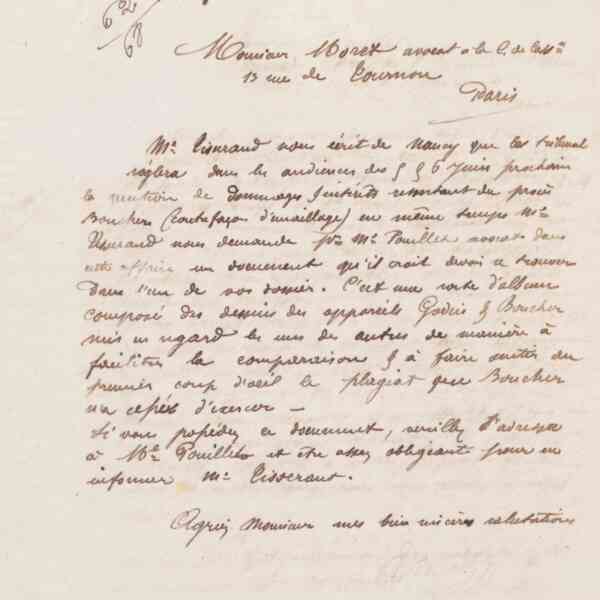 62
68
Monsieur Moret avocat à la C. de Cassn
13 rue de Tournon
Paris
Mr. Tisserand nous écrit de Nancy que les tribunal
règlera dans les audiences des 5 & 6 Juin prochain
la question de dommages intérêts résultant du procès
Boucher (contrefaçon d'émaillage) en même temps Mr.
Tisserand nous demande pr. Me Pouillet avocat dans
cette affaire un document qu'il croit devoir se trouver
dans l'un de vos dossiers. C'est une sorte d'album
composé des dessins des appareils Godin & Boucher
mis en regard les uns des autres de manière à
faciliter la comparaison & à faire sauter au
premier coup d'oeil le plagiat que Boucher
na cessé d'exercer —
Si vous possédez ce document, veuillez l'adresser
à Me. Pouillet et être assez obligeant pour en
informer Mr. Tisserant.
Agréez Monsieur mes bien sincères salutations